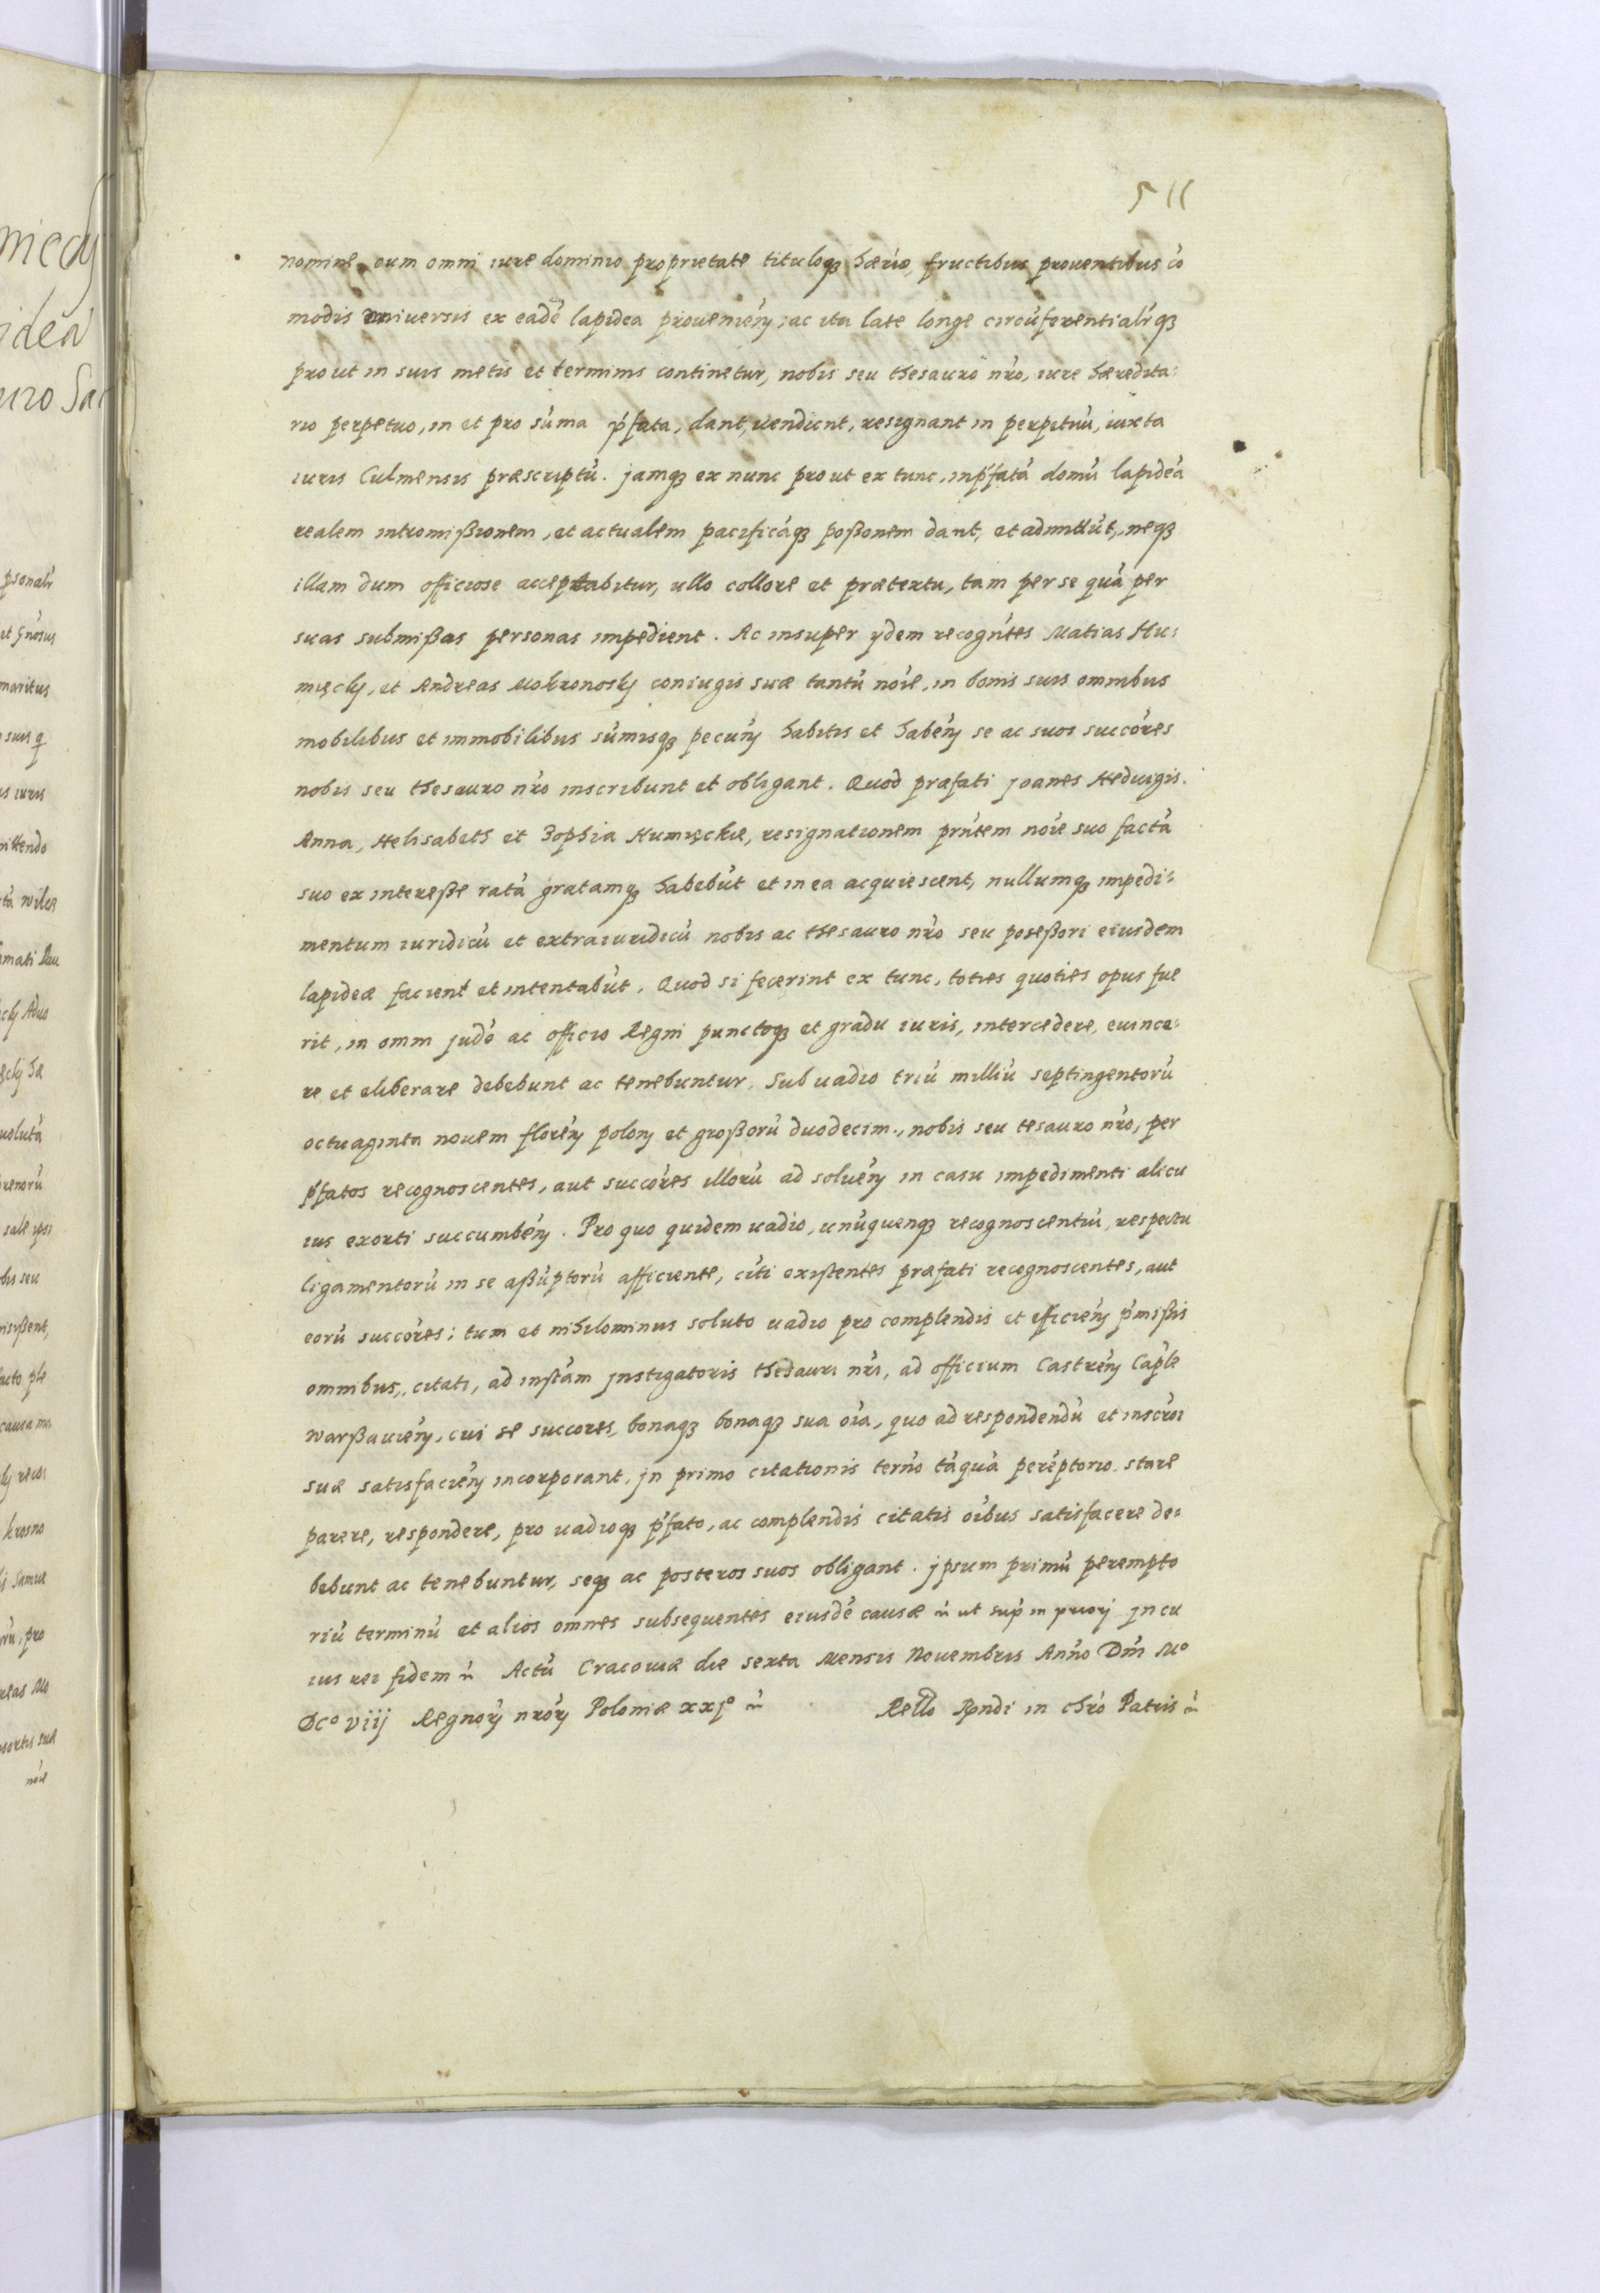 511
nomine, cum omni iure dominio proprietate tituloq₃ hærio, fructibus prouentibus cō
modis vniuersis ex eadē lapidea prouenień, ac ita late longe circūferentialr̃q₃
prout in suis metis et terminis continetur, nobis seu thesauro nrō, iure hæredita:
rio perpetuo, in et pro sūma p̃fata, dant, uendunt, resignant in perpetuū, iuxta
iuris Culmensis præscriptū. jamq₃ ex nunc prout ex tunc, in p̃fatā domū lapideā
realem intromißionem, et actualem pacificāq₃ poßonem dant, et admittūt, neq₃
illam dum officiose acceptabitur, ullo collore et prætextu, tam per se quā per
suas submißas personas impedient. Ac insuper ydem recogn̄tes Matias Hu:
mięcky, et Andreas Mokronosky coniugis suæ tantū nōie, in bonis suis omnibus
mobilibus et immobilibus sūmisq₃ pecuń habitis et habeń se ac suos succōres
nobis seu thesauro nrō inscribunt et obligant. Quod præfati Joanes Heduigis.
Anna, Helisabeth et Zophia Humięckie, resignationem prn̄tem nōie suo factā
suo ex intereße ratā gratamq₃ habebūt et in ea acquiescent, nullumq₃ impedi:
mentum iuridicū et extraiuridicū nobis ac thesauro nrō seu poseßori eiusdem
lapideæ facient et intentabūt. Quod si fecerint ex tunc, toties quoties opus fue
rit, in omni judō ac officio Regni punctoq₃ et gradu iuris, intercedere, euince:
re et eliberare debebunt ac tenebuntur. Sub uadio triū milliū septingentorū
octuaginta nouem floreń polon et großorū duodecim., nobis seu tesauro nrō, per
p̃fatos recognoscentes, aut succōres illorū ad solueń in casu impedimenti alicu
ius exorti succumbeń. Pro quo quidem uadio, unūquenq₃ recognoscentiū, respectu
ligamentorū in se aßūptorū afficiente, citi existentes præfati recognoscentes, aut
eorū succōres; tum et nihilominus soluto uadio pro complendis et efficień p̃mißis
omnibus,, citati, ad instām jnstigatoris thesauri nrī, ad officium Castreń Caple
Warßauień, cui se succores, bonaq₃ bonaq₃ sua oīa, quo ad respondendū et inscrōi
suæ satisfacień incorporant, jn primo citationis termō tāquā perēptorio. stare
parere, respondere, pro uadioq₃ p̃fato, ac complendis citatis oībus satisfacere de:
bebunt ac tenebuntur, seq₃ ac posteros suos obligant. jpsum primū perempto
riū terminū et alios omnes subsequentes eiusdē causæ ñ ut sup̃ in priorj jn cu
ius rei fidem ñ Actū Cracouiæ die sexta Mensis Nouembris Annō Dm̄ Mo
Dco viij Regnorȳ nrōrȳ Poloniæ xxjo ñ Rello Rn̄di in Chrō Patris ñ